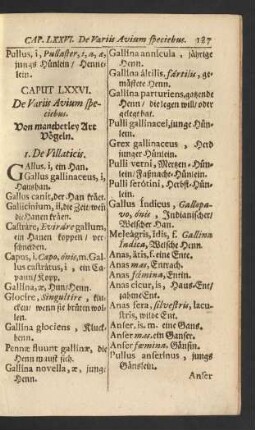 CAP. LXXVI. De Variis Avium speciebus. 187
Pullus, i, Pullaster, i, a, æ,
jungs Hünlein / Henne-
lein.
CAPUT LXXVI.
De Variis Avium spe-
ciebus.
Von mancherley Art
Vögeln.
1. De Villaticis.
GAllus, i, ein Han.
Gallus gallinaceus, i,
Haushan.
Gallus canit, der Han kräet.
Gallicinium, ii, die Zeit/wen
die Hanen kräen.
Castrare, Evirare gallum,
ein Hanen koppen / ver-
schneiden.
Capus, i, Capo, ónis, m. Gal-
lus castratus, i, ein Ca-
paun/Kopp.
Gallina, æ, Hun/Henn.
Glocire, Singultire, klu-
cken/ wenn sie brüten wol-
len.
Gallina glociens, Kluck-
henn.
Pennæ fluunt gallinæ, die
Henn maust sich.
Gallina novella, æ, jungs
Henn.
Gallina annicula, jährige
Henn.
Gallina áltilis, fártilis, ge-
mästete Henn.
Gallina parturiens, gatzende
Henn/ die legen will/oder
gelegt hat.
Pulli gallinacei, junge Hün-
lein.
Grex gallinaceus, Herd
junger Hünlein.
Pulli verni, Mertzen-Hün-
lein/Faßnacht-Hünlein.
Pulli serótini, Herbst-Hün-
lein.
Gallus Índicus, Gallopa-
vo, ónis, Indianischer
Welscher Han.
Meleagris, idis, f. Gallina
Indica, Welsche Henn.
Anas, átis, f. eine Ente.
Anas mas, Entrach.
Anas fœmina, Entin.
Anas cicur, is, Haus-Ent/
zahme Ent.
Anas fera, silvestris, lacu-
stris, wilde Ent.
Anser, is, m. eine Gans.
Anser mas, ein Ganser.
Anser fœmina, Gänsin.
Pullus anserinus, jungs
Gänslein.
Anser